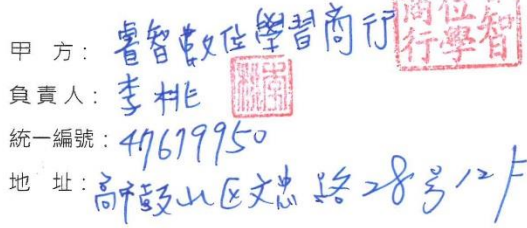 甲 方：睿智數位學習商行
負責人：李桃
統一編號：47679950
地 址：高市鼓山区文忠路28号12F